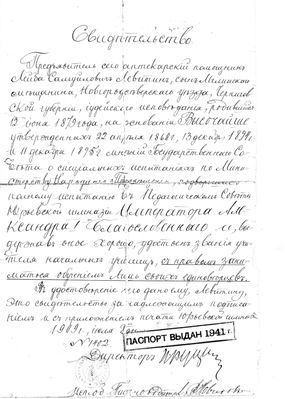 Свидетельство.
Предъявитель сего аптекарский помощникъ
Лейба Самуиловъ Левитинъ, сынъ Мглинскаго
мѣщанина, Новозыбковскаго уѣзда, Чернигов
ской губерніи, іудейскаго исповѣданія, родивш
13 іюня 1879 года, на основаніи Высочайше
утвержденныхъ 22 апрѣля 1868 г., 13 декабря 1874 г.
и 11 декабря 1895 г. мнѣній Государственнаго Со-
вѣта о спеціальныхъ испытаніяхъ по Мини-
стерству Народнаго Просвѣщенія, подвергался
испытанію въ Педагогическомъ Совѣтѣ
Юрьевской гимназіи Императора Але
ксандра I Благословеннаго и, вы-
державъ оное хорошо, удостоенъ званія учи-
теля начальныхъ училищъ, съ правомъ зани-
маться обученіемъ лишь своихъ единовѣрцевъ.
Въ удостовѣреніе чего данъ ему, Левитину,
это свидѣтельство за надлежащимъ подписа-
ніемъ и съ приложеніемъ печати Юрьевской гимназіи
1909 г., іюля
ПАСПОРТ ВЫДАН 1941 г.
Директоръ